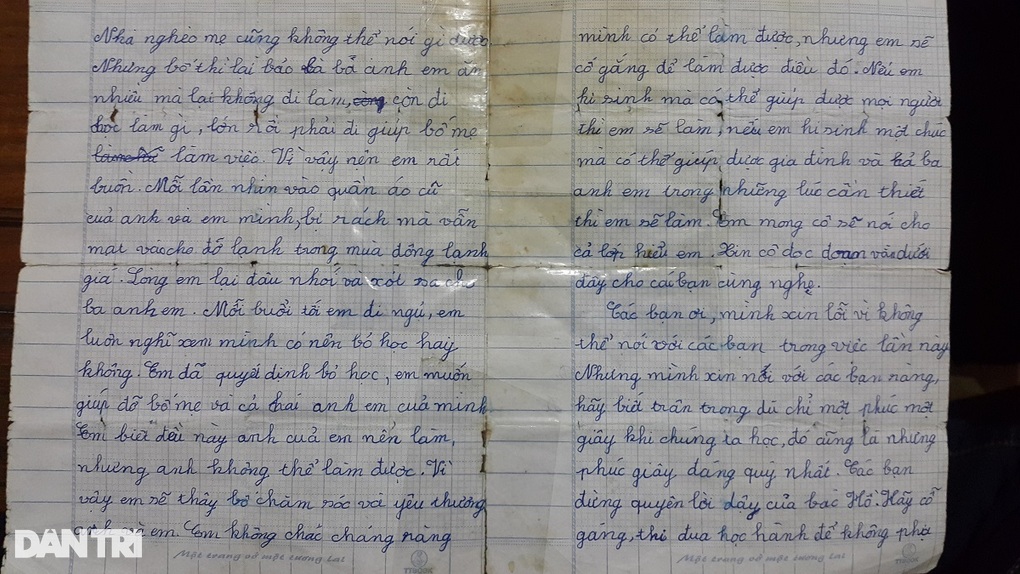 Nhà nghèo mẹ cũng không thể nói gì được
Nhưng bố thì lại bảo là bả anh em ăn
nhiều mà lại không đi làm, còn đi
học làm gì, lớn rồi phải đi giúp bố mẹ
làm việc. Vì vậy nên em rất
buồn. Mỗi lần nhìn vào quần áo cũ
của anh và em mình, bị rách mà vẫn
mặt vào cho đỡ lạnh trong mùa đông lạnh
giá. Lòng em lại đâu nhói và xót xa cho
ba anh em. Mỗi buổi tối em đi ngủ, em
luôn nghĩ xem mình có nên bỏ học hay
không. Em đã quyết định bỏ học, em muốn
giúp đỡ bố mẹ và cả hai anh em của mình
Em biết đều này anh của em nên làm,
nhưng anh không thể làm được. Vì
vậy em sẽ thây bố chăm sóc và yêu thương
anh và em. Em không chắc cháng rằng
mình có thể làm được, nhưng em sẽ
cố gắng để làm được điều đó. Nếu em
hi sinh mà có thể giúp được mọi người
thì em sẽ làm, nếu em hi sinh một chúc
mà có thể giúp được gia đình và cả ba
anh em trong những lúc cần thiết
thì em sẽ làm. Em mong cô sẽ nói cho
cả lớp hiểu em. Xin cô đọc đoạn văn dưới
đây cho các bạn cùng nghe.
Các bạn ơi, mình xin lỗi vì không
thể nói với các bạn trong việc lần này
Nhưng mình xin nói với các bạn rằng,
hãy biết trân trọng dù chỉ một phúc một
giây khi chúng ta học, đó cũng là những
phúc giây đáng quý nhất. Các bạn
đừng quyên lời dậy của bác Hồ. Hãy cố
gắng, thi đua học hành để không phụ
Mặt trang vở mặt tương lai
Mặt trang vở mặt tương lai
DÂN TRÍ